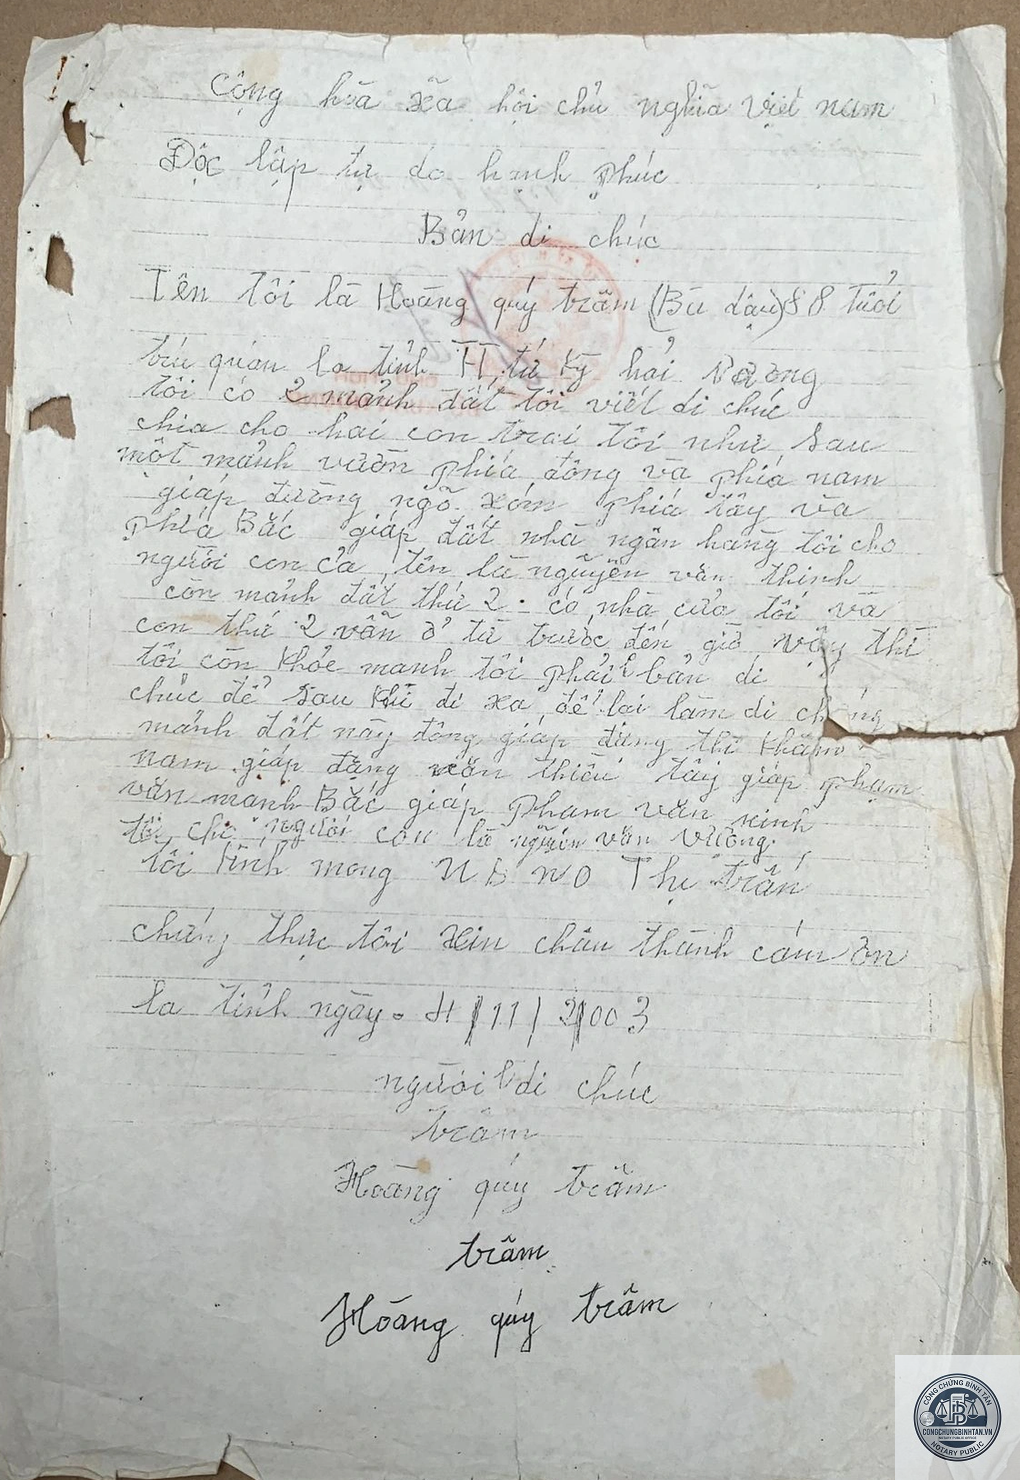 Cộng hòa xã hội chủ nghĩa việt nam
Độc lập tự do hạnh phúc
Bản di chúc
Tên tôi là Hoàng quý trâm (Bà dậu) 88 tuổi
trú quán la tỉnh TT tứ kỳ hải dương
tôi có 2 mảnh đất tôi viết di chúc
chia cho hai con trai tôi như sau
một mảnh vườn phía đông và phía nam
giáp đường ngõ xóm phía tây và
phía Bắc giáp đất nhà ngân hàng tôi cho
người con cả tên là nguyễn văn thinh
còn mảnh đất thứ 2 có nhà cửa tôi và
con thứ 2 vẫn ở từ trước đến giờ vậy thì
tôi còn khỏe mạnh tôi phải bản di
chúc để sau khi đi xa để lại làm di
mảnh đất này đông giáp đặng thị khâm
nam giáp đặng văn thiều tây giáp phạm
văn mạnh Bắc giáp phạm văn ninh
tôi cho người con là nguyễn văn vương
tôi kính mong U B N D Thị trấn
chứng thực tôi xin chân thành cám ơn
la tỉnh ngày 4/11/2003
người di chúc
trâm
Hoàng quý trâm
trâm
Hoàng quý trâm
CÔNG CHỨNG BÌNH TÂN
CONGCHUNGBINHTAN.VN
NOTARY PUBLIC OFFICE
NOTARY PUBLIC